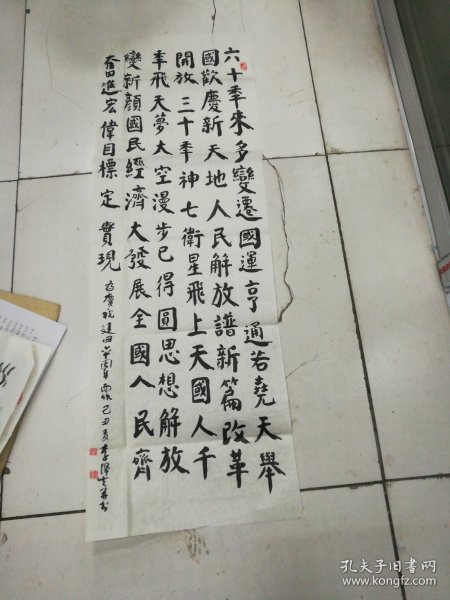 六十秊來多變遷國運亨通若堯天舉
國歡慶新天地人民解放譜新篇改革
開放三十秊神七衛星飛上天國人千
秊飛天夢太空漫步已得圓思想解放
變新顏國民經濟大發展全國人民齊
奮進宏偉目標定實現
為慶祝建國六十周年而作己丑夏李
孔夫子旧书网
www.kongfz.com